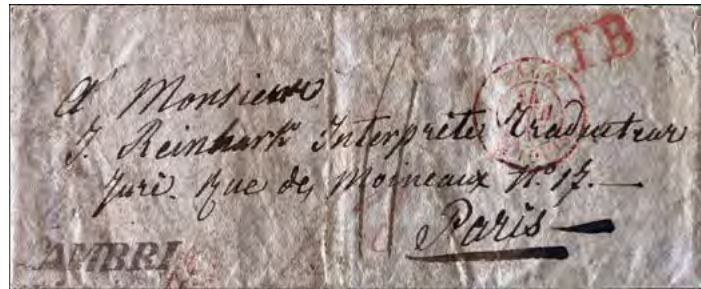 TB
A' Monsieur
J. Reinhark Interprète Traducteur
Juré. Rue des Moineaux N° 17.
Paris
AMBRI